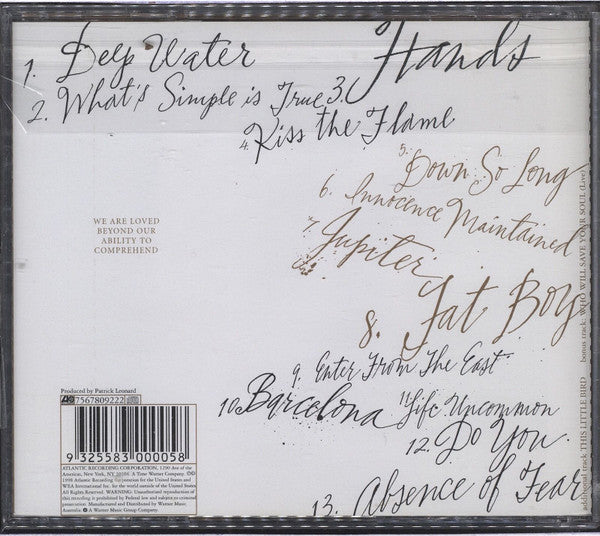 1. Deep Water
2. What's Simple is True
3. Hands
4. Kiss the Flame
5. Down So Long
6. Innocence Maintained
7. Jupiter
8. Fat Boy
9. Enter From The East
10. Barcelona
11. Life Uncommon
12. Do You
13. Absence of Fear
WE ARE LOVED
BEYOND OUR
ABILITY TO
COMPREHEND
Produced by Patrick Leonard
7567809222
9 325583 000058
ATLANTIC RECORDING CORPORATION, 1290 Ave of the
Americas, New York, NY 10104 A Time Warner Company.
1998 Atlantic Recording Corporation for the United States and
WEA International Inc. for the world outside of the United States
All Rights Reserved. WARNING: Unauthorized reproduction of
this recording is prohibited by Federal law and subject to criminal
prosecution. Manufactured and Distributed by Warner Music
Australia. A Warner Music Group Company.
additional track THIS LITTLE BIRD bonus track: WHO WILL SAVE YOUR SOUL (Live)